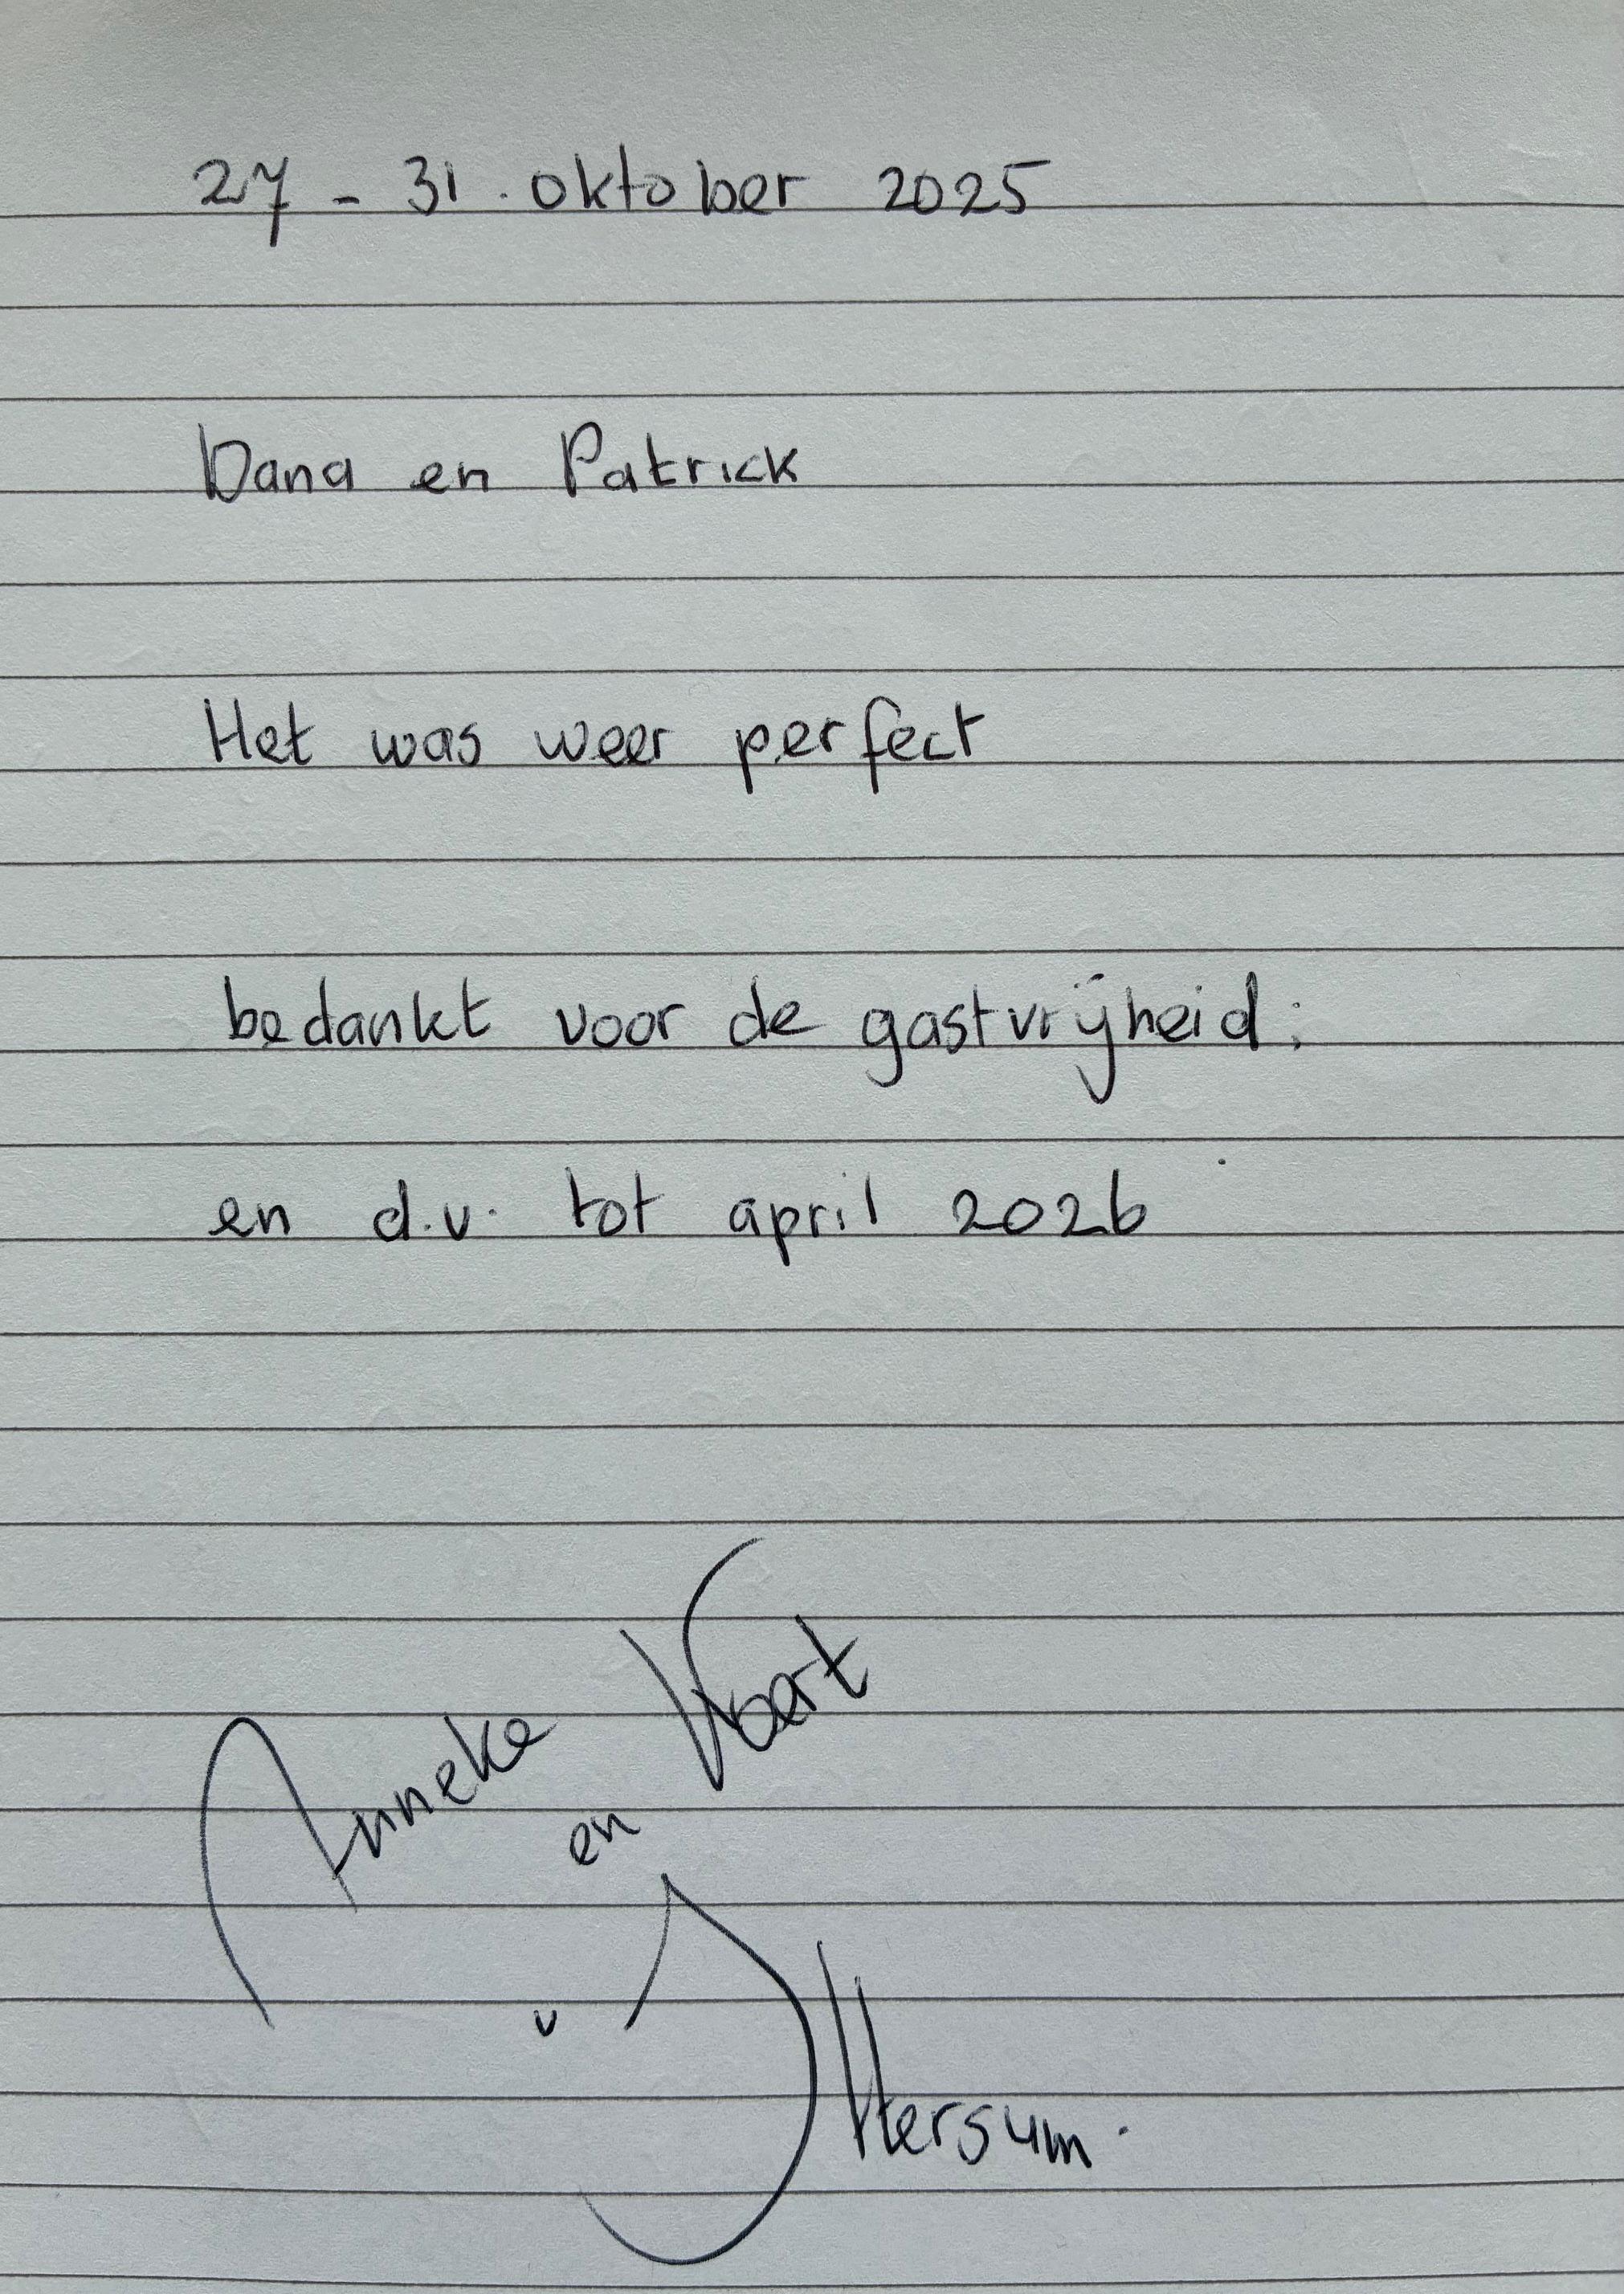 27 - 31 oktober 2025
Dana en Patrick
Het was weer perfect
bedankt voor de gastvrijheid;
en d.v. tot april 2026
Anneke
en
v